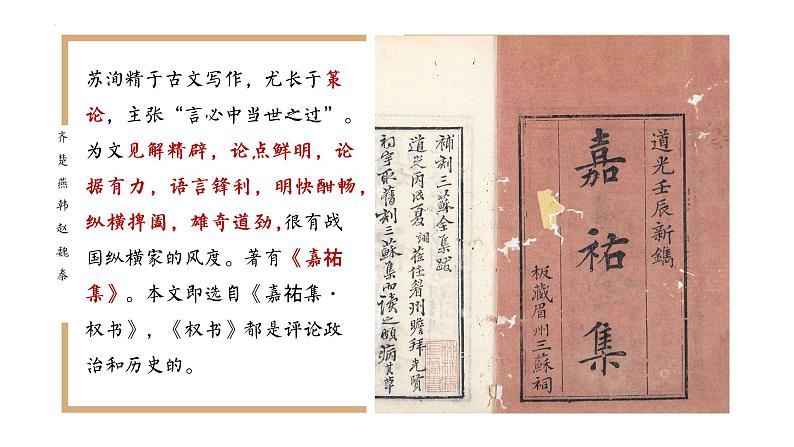 苏洵精于古文写作，尤长于策
论，主张“言必中当世之过”。
为文见解精辟，论点鲜明，论
据有力，语言锋利，明快酣畅，
纵横捭阖，雄奇遒劲，很有战
国纵横家的风度。著有《嘉祐
集》。本文即选自《嘉祐集·
权书》，《权书》都是评论政
治和历史的。
齐楚燕韩赵魏秦
道光壬辰新鐫
嘉祐集
板藏眉州三蘇祠
補刻三蘇全集跋
道光丙戌夏翃蒞任眉州瞻拜先賢
祠宇取舊刻三蘇集而讀之頗病其草